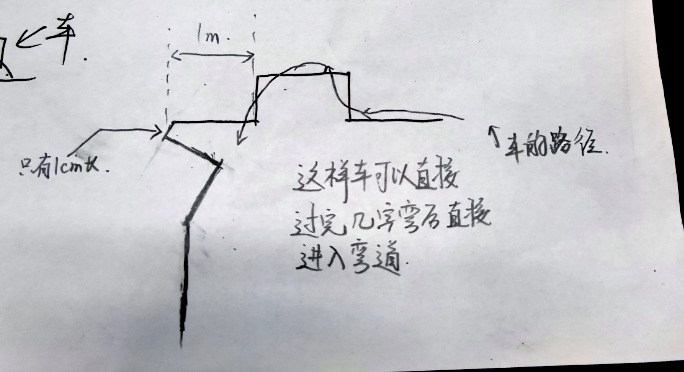 车.
1m.
只有1cm长.
车的路径.
这样车可以直接
过完几字弯后直接
进入弯道.